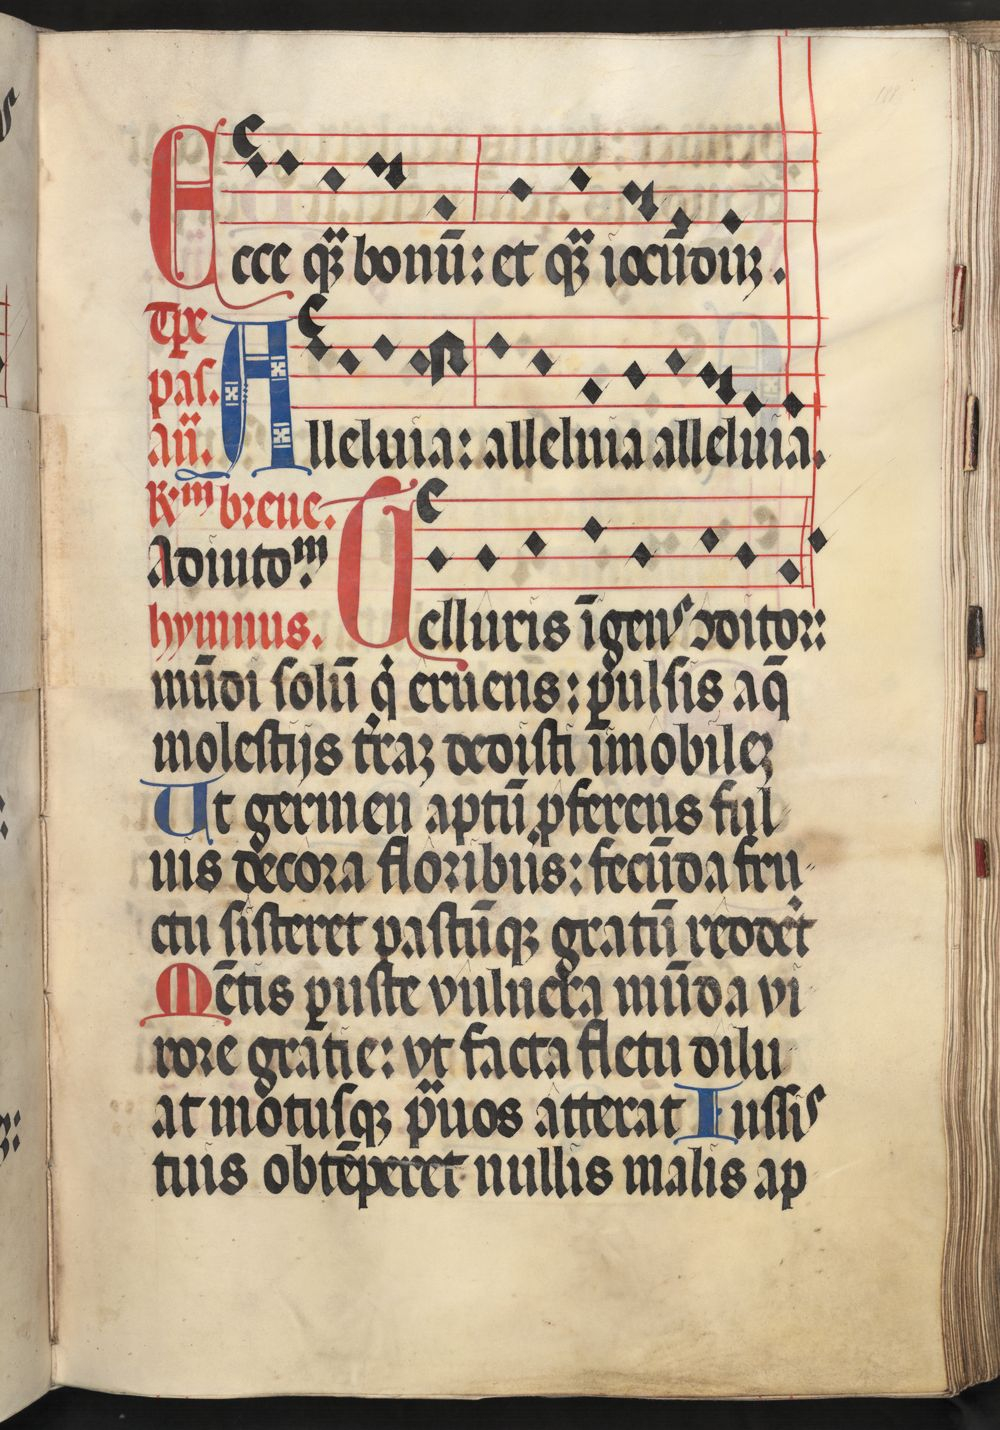 Ecce qȝ̈ bonū: et qȝ̈ iocūdūȝ.
Tp̄e
pas.
an̄.
Alleluia: alleluia alleluia.
R.ͫ breue.
Adiutoͫ.
hymnus.
Telluris īgens ↄditor:
mūdi solū q̇ eruens: pulsis aq̄
molestijs t̓raȝ dedisti īmobileȝ
Ut germen aptū ꝓferens ful
uis decora floribus: fecūda fru-
ctu sisteret pastūqȝ gratū reddet̓
Mētis ꝑuste vulnera mūda vi
rore gratie: vt facta fletu dilu
at motusqȝ p̈uos atterat Iussis
tuis obtēperet nullis malis ap